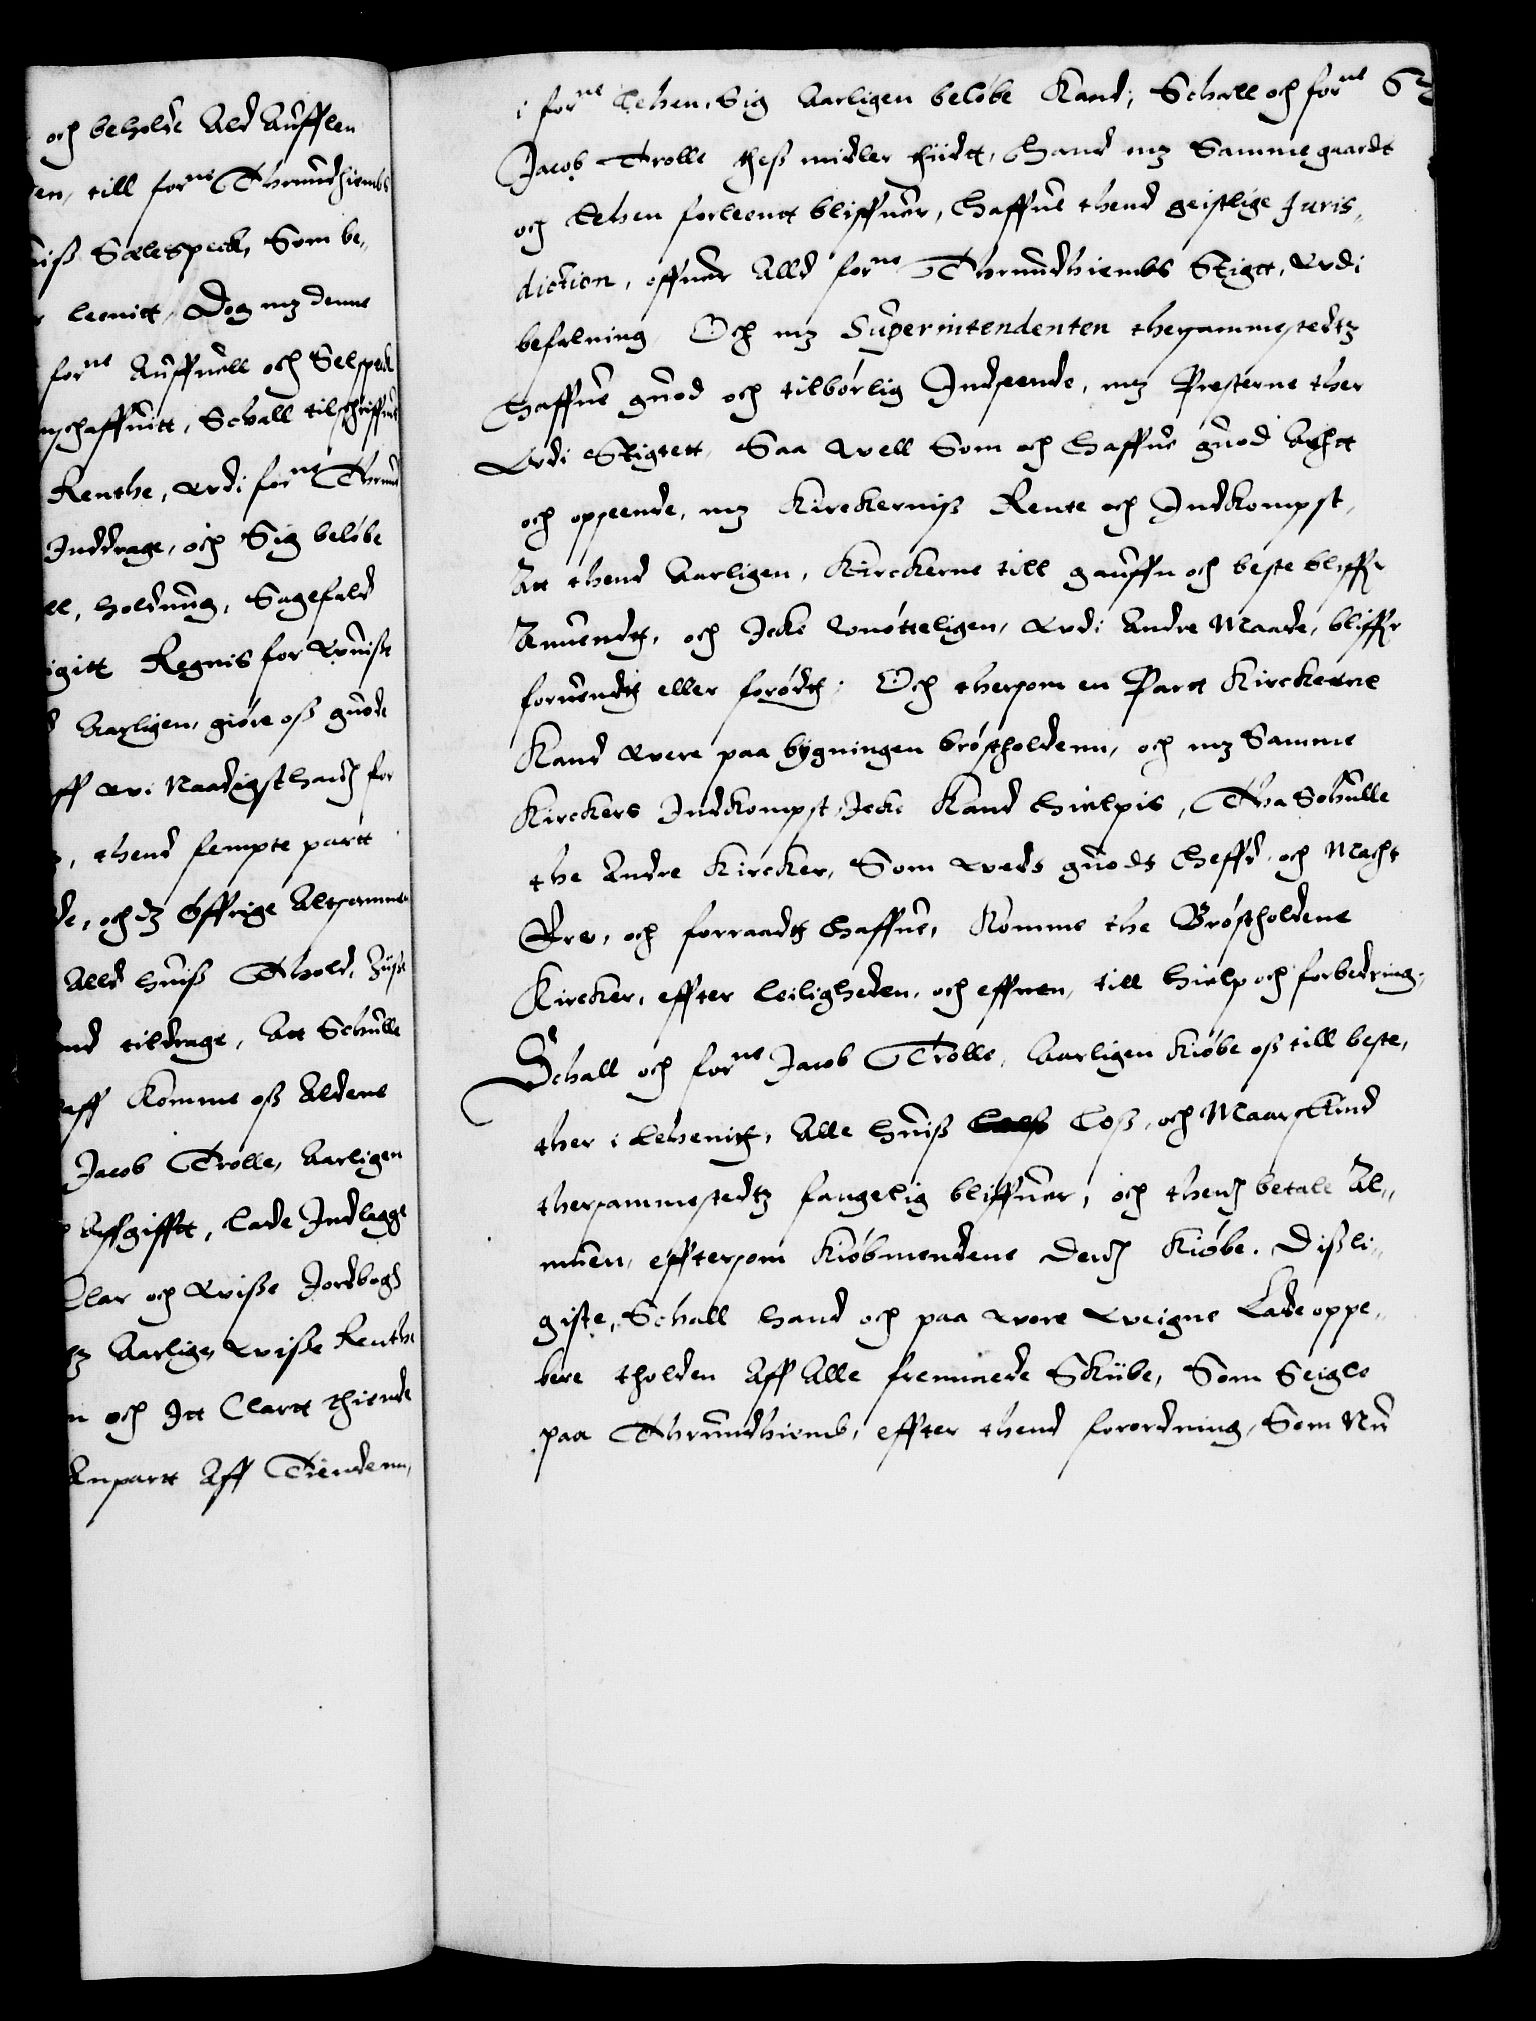 och beholde Ald Aufflen
en, till forne Thrundhiembs
iß Sælespeck, Som be„
leenitt, Dog mz denne
forne Auffuell och Selspeck
schaffuitt, Schall tilschriffue
Renthe, wdi forne Thrund
Inddrage, och Sig beløbe
ll, holdning, Sagefald
igitt Regnis for wuisse
Aarligen, giøre oß guode
ff wi Naadigst haufr for
, thend fempte partt
de, och dz Øffrige Altsammen
Alld huiß Thold, Zijse
nd tildrage, Att Schulle
aff Komme oß Aldene
Jacob Trolle, Aarligen
Affgifftt, lade Indlegge
Clar och wisse Jordbogh
tz Aarlige wisse Renthe
n och Itt Clartt thiende
Anpartt Aff Tiendenn,
i forne Lehen, Sig Aarligen beløbe Kand, Schall och forne
Jacob Trolle theß midler thiidt, hand mz Samme gaardt
och Lehen forleentt bliffuer, haffue thend geistlige Juris„
diction, offuer Alld forne Thrundhiembs Stigtt, wdi
befalning, Och mz Superintendenten thersammestedtz
haffue guod och tilbørlig Indseende, mz Presterne ther
wdi Stigtett, Saa well Som och haffue guod Achtt
och opseende, mz Kirckerniß Rente och Indkompst,
Att thend Aarligen, Kirckerne till gauffn och beste bliffr
Anuendtt, och Icke wnøtteligen, wdi Andre Maade, bliffr
foruendtt eller forødtt: Och thersom en Partt Kirckerne
Kand were paa bygningen brøstholdenn, och mz Samme
Kirckers Indkompst, Icke Kand hielpis, Tha Schulle
the Andre Kircker, Som weds guods heffd och Macht
Ere, och forraadtt haffue, Komme the Brøstholdene
Kircker, effter leiligheden, och effnen, till hielp och forbedring,
Schall och forne Jacob Trolle, Aarligen Kiøbe oß till beste,
ther i Lehenitt, Alle huiß Loß, och Maarskind
thersammestedtz fangelig bliffuer, och thend betale Al„
muen, effttersom Kiøbmendene dend Kiøbe. Dißli„
giste, Schall hand och paa wore weigne Lade oppe„
bere tholden Aff Alle fremmede Skiibe, Som Seigle
paa Thrundhiemb, effter thend forordning, Som Nu